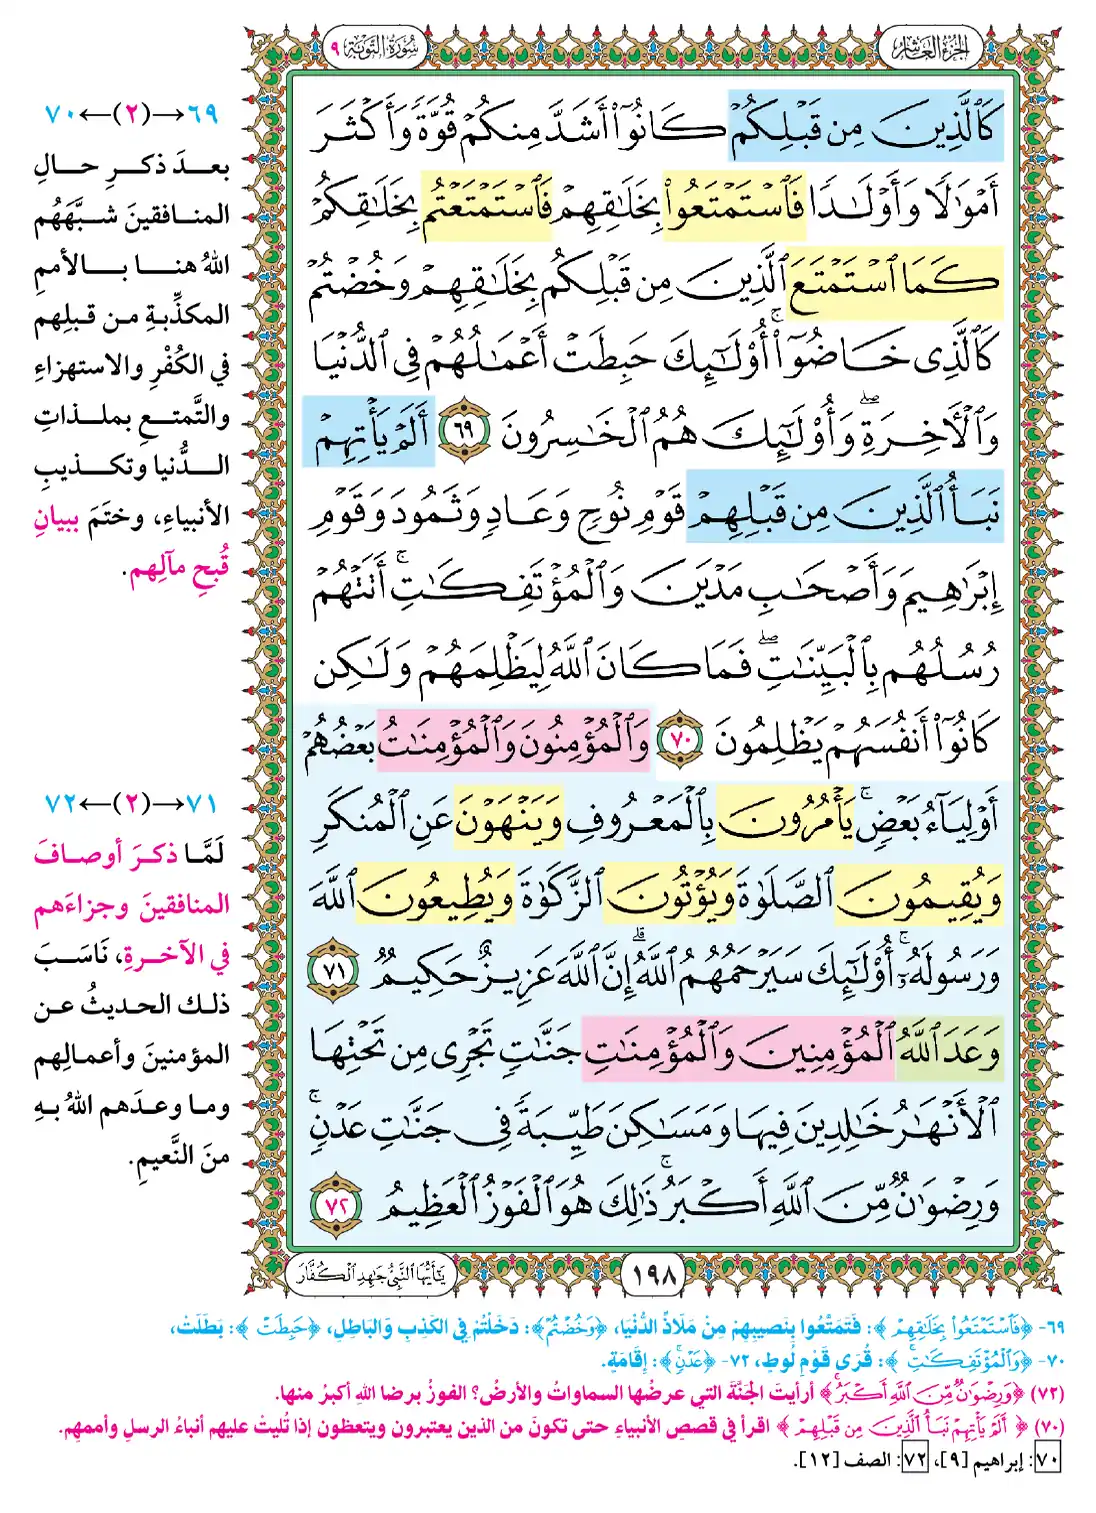 الجزء العاشر
سورة التوبة ٩
كَٱلَّذِينَ مِن قَبْلِكُمْ كَانُوٓا۟ أَشَدَّ مِنكُمْ قُوَّةً وَأَكْثَرَ
أَمْوَٰلًا وَأَوْلَـٰدًا فَٱسْتَمْتَعُوا۟ بِخَلَـٰقِهِمْ فَٱسْتَمْتَعْتُم بِخَلَـٰقِكُمْ
كَمَا ٱسْتَمْتَعَ ٱلَّذِينَ مِن قَبْلِكُم بِخَلَـٰقِهِمْ وَخُضْتُمْ
كَٱلَّذِى خَاضُوٓا۟ ۚ أُو۟لَـٰٓئِكَ حَبِطَتْ أَعْمَـٰلُهُمْ فِى ٱلدُّنْيَا
وَٱلْـَٔاخِرَةِ ۖ وَأُو۟لَـٰٓئِكَ هُمُ ٱلْخَـٰسِرُونَ ٦٩ أَلَمْ يَأْتِهِمْ
نَبَأُ ٱلَّذِينَ مِن قَبْلِهِمْ قَوْمِ نُوحٍ وَعَادٍ وَثَمُودَ وَقَوْمِ
إِبْرَٰهِيمَ وَأَصْحَـٰبِ مَدْيَنَ وَٱلْمُؤْتَفِكَـٰتِ ۚ أَتَتْهُمْ
رُسُلُهُم بِٱلْبَيِّنَـٰتِ ۖ فَمَا كَانَ ٱللَّهُ لِيَظْلِمَهُمْ وَلَـٰكِن
كَانُوٓا۟ أَنفُسَهُمْ يَظْلِمُونَ ٧٠ وَٱلْمُؤْمِنُونَ وَٱلْمُؤْمِنَـٰتُ بَعْضُهُمْ
أَوْلِيَآءُ بَعْضٍ ۚ يَأْمُرُونَ بِٱلْمَعْرُوفِ وَيَنْهَوْنَ عَنِ ٱلْمُنكَرِ
وَيُقِيمُونَ ٱلصَّلَوٰةَ وَيُؤْتُونَ ٱلزَّكَوٰةَ وَيُطِيعُونَ ٱللَّهَ
وَرَسُولَهُۥٓ ۚ أُو۟لَـٰٓئِكَ سَيَرْحَمُهُمُ ٱللَّهُ ۗ إِنَّ ٱللَّهَ عَزِيزٌ حَكِيمٌ ٧١
وَعَدَ ٱللَّهُ ٱلْمُؤْمِنِينَ وَٱلْمُؤْمِنَـٰتِ جَنَّـٰتٍ تَجْرِى مِن تَحْتِهَا
ٱلْأَنْهَـٰرُ خَـٰلِدِينَ فِيهَا وَمَسَـٰكِنَ طَيِّبَةً فِى جَنَّـٰتِ عَدْنٍ ۚ
وَرِضْوَٰنٌ مِّنَ ٱللَّهِ أَكْبَرُ ۚ ذَٰلِكَ هُوَ ٱلْفَوْزُ ٱلْعَظِيمُ ٧٢
١٩٨
يَـٰٓأَيُّهَا ٱلنَّبِىُّ جَـٰهِدِ ٱلْكُفَّارَ
٦٩→(٢)←٧٠
بعدَ ذكرِ حالِ
المنافقينَ شبَّهَهُم
اللهُ هنا بالأممِ
المكذِّبةِ من قبلِهم
في الكُفْرِ والاستهزاءِ
والتَّمتعِ بملذاتِ
الدُّنيا وتكذيبِ
الأنبياءِ، وختَمَ ببيانِ
قُبحِ مآلِهم.
٧١→(٢)←٧٢
لَمَّا ذكرَ أوصافَ
المنافقينَ وجزاءَهم
في الآخرةِ، نَاسَبَ
ذلك الحديثُ عن
المؤمنينَ وأعمالِهم
وما وعدَهم اللهُ بهِ
منَ النَّعيمِ.
٦٩- ﴿فَٱسْتَمْتَعُوا۟ بِخَلَـٰقِهِمْ﴾: فَتَمَتَّعُوا بِنَصِيبِهِمْ مِنْ مَلَاذِّ الدُّنْيَا، ﴿وَخُضْتُمْ﴾: دَخَلْتُمْ فِي الكَذِبِ وَالبَاطِلِ، ﴿حَبِطَتْ﴾: بَطَلَتْ،
٧٠- ﴿وَٱلْمُؤْتَفِكَـٰتِ ۚ﴾: قُرَى قَوْمِ لُوطٍ، ٧٢- ﴿عَدْنٍ ۚ﴾: إِقَامَةٍ.
(٧٢) ﴿وَرِضْوَٰنٌ مِّنَ ٱللَّهِ أَكْبَرُ ۚ﴾ أرأيتَ الجَنَّةَ التي عرضُها السماواتُ والأرضُ؟ الفوزُ برضا اللهِ أكبرُ منها.
(٧٠) ﴿أَلَمْ يَأْتِهِمْ نَبَأُ ٱلَّذِينَ مِن قَبْلِهِمْ﴾ اقرأ في قصصِ الأنبياءِ حتى تكونَ من الذين يعتبرون ويتعظون إذا تُليتْ عليهم أنباءُ الرسلِ وأممهم.
٧٠: إبراهيم [٩]، ٧٢: الصف [١٢].